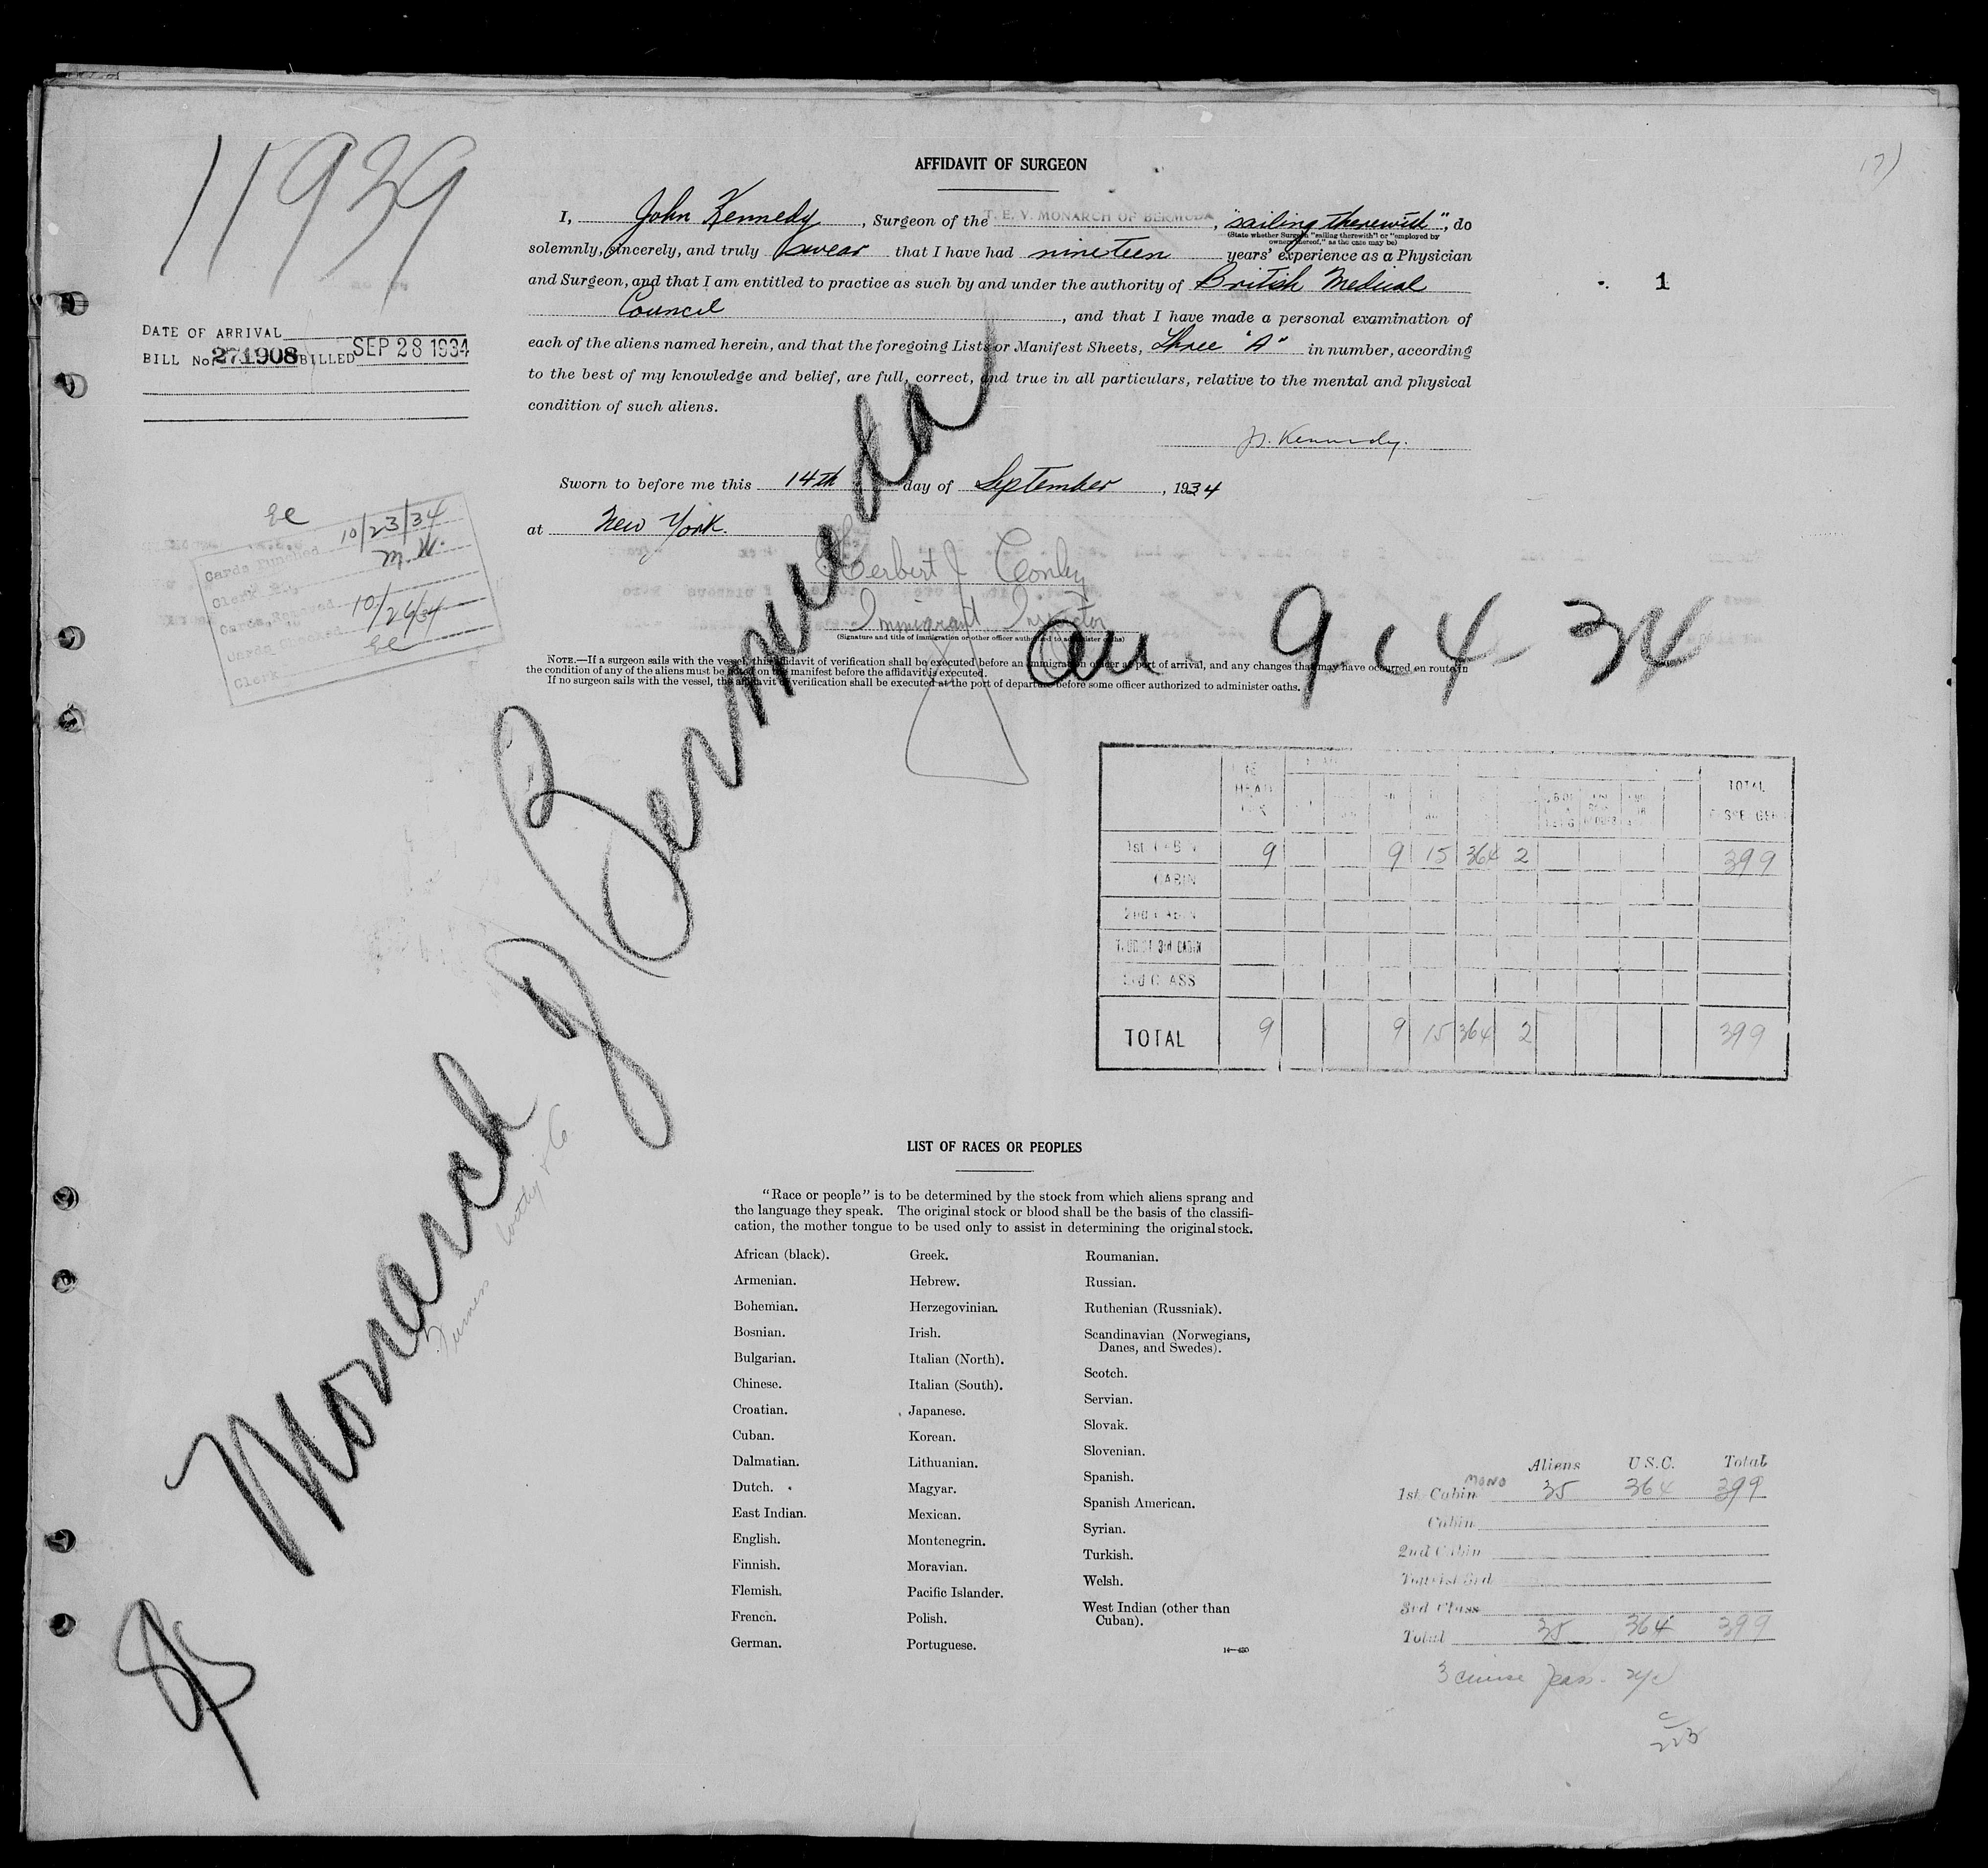 11939
AFFIDAVIT OF SURGEON
I, John Kennedy, Surgeon of the T. E. V. MONARCH OF BERMUDA, "sailing therewith", do
(State whether Surgeon "sailing therewith" or "employed by
owners thereof," as the case may be)
solemnly, sincerely, and truly swear that I have had nineteen years' experience as a Physician
and Surgeon, and that I am entitled to practice as such by and under the authority of British Medical
Council, and that I have made a personal examination of
each of the aliens named herein, and that the foregoing Lists or Manifest Sheets, Three "A" in number, according
to the best of my knowledge and belief, are full, correct, and true in all particulars, relative to the mental and physical
condition of such aliens.
J. Kennedy.
1
DATE OF ARRIVAL
BILL No. 271908 BILLED SEP 28 1934
Sworn to before me this 14th day of September, 1934
at New York.
Herbert J Conley
Immigrant Inspector
(Signature and title of immigration or other officer authorized to administer oaths)
NOTE.—If a surgeon sails with the vessel, this affidavit of verification shall be executed before an immigration officer at port of arrival, and any changes that may have occurred en route in
the condition of any of the aliens must be noted on the manifest before the affidavit is executed.
If no surgeon sails with the vessel, the affidavit of verification shall be executed at the port of departure before some officer authorized to administer oaths.
Cards Punched 10/23/34
Clerk M.W.
Cards 10/26/34
Clerk
Monarch of Bermuda
Furness Withy & Co
9 14 - 34
HEAD
TOTAL
1st CABIN 9 9 15 364 2 399
CABIN
2nd CABIN
TOURIST 3rd CABIN
3rd CLASS
TOTAL 9 9 15 364 2 399
LIST OF RACES OR PEOPLES
"Race or people" is to be determined by the stock from which aliens sprang and
the language they speak. The original stock or blood shall be the basis of the classifi-
cation, the mother tongue to be used only to assist in determining the original stock.
African (black).
Armenian.
Bohemian.
Bosnian.
Bulgarian.
Chinese.
Croatian.
Cuban.
Dalmatian.
Dutch.
East Indian.
English.
Finnish.
Flemish.
French.
German.
Greek.
Hebrew.
Herzegovinian.
Irish.
Italian (North).
Italian (South).
Japanese.
Korean.
Lithuanian.
Magyar.
Mexican.
Montenegrin.
Moravian.
Pacific Islander.
Polish.
Portuguese.
Roumanian.
Russian.
Ruthenian (Russniak).
Scandinavian (Norwegians,
Danes, and Swedes).
Scotch.
Servian.
Slovak.
Slovenian.
Spanish.
Spanish American.
Syrian.
Turkish.
Welsh.
West Indian (other than
Cuban).
Aliens U.S.C. Total
MONO
1st Cabin 35 364 399
Cabin
2nd Cabin
Tourist 3rd
3rd Class
Total 35 364 399
3 cruise pass.